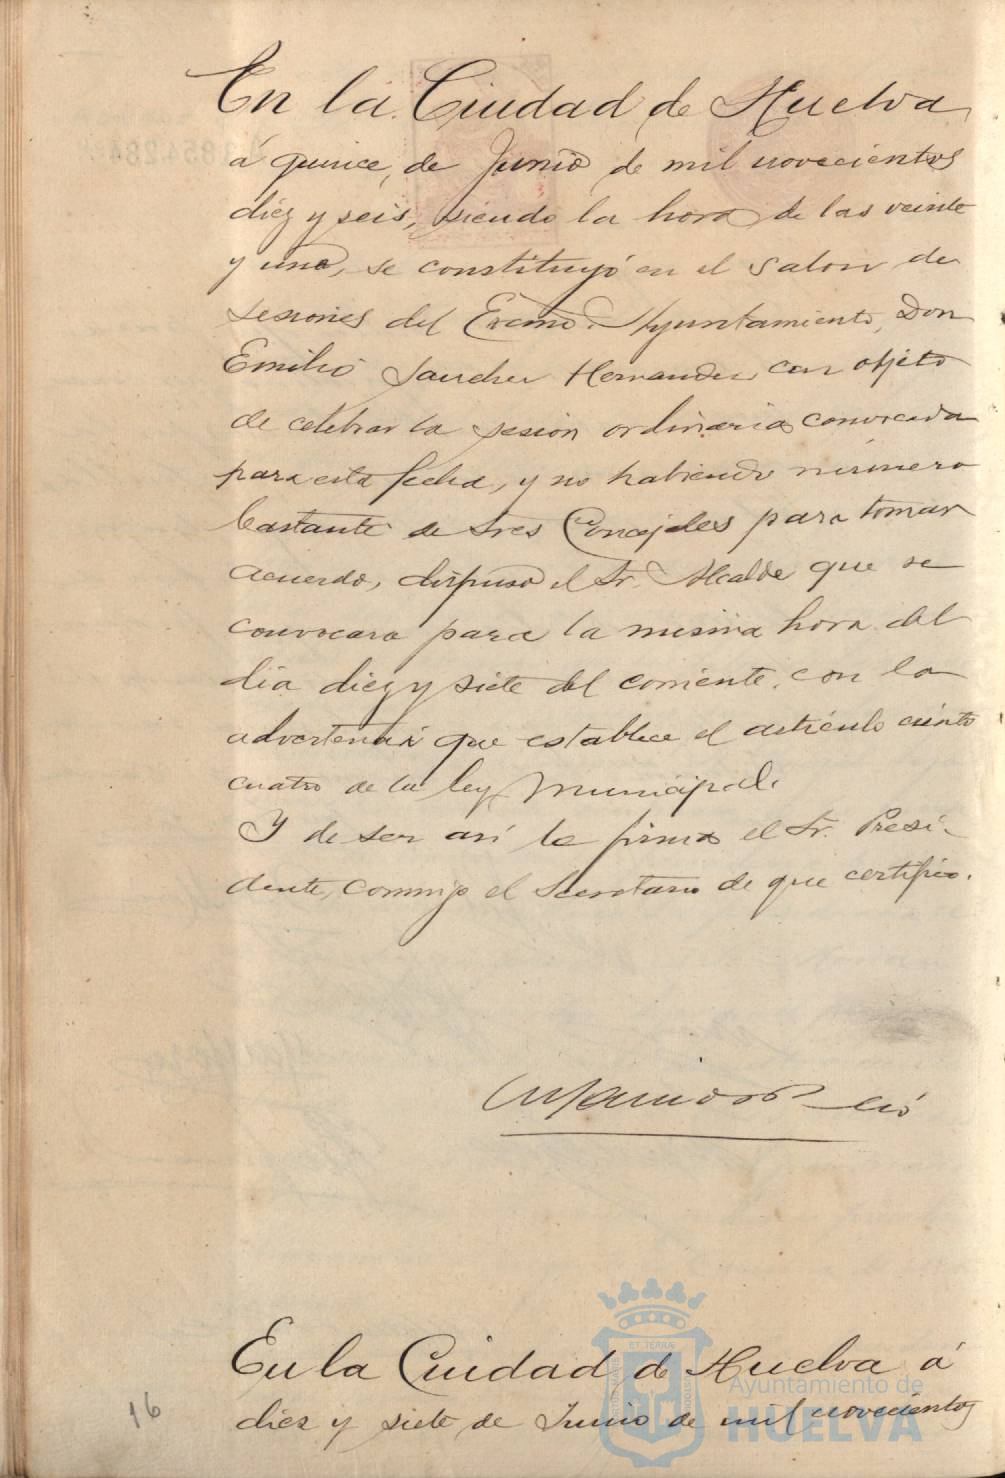 En la Ciudad de Huelva
á quince, de Junio de mil novecientos
diez y seis, siendo la hora de las veinte
y una, se constituyó en el salon de
sesiones del Excmo. Ayuntamiento, Don
Emilio Sanchez Hernandez con objeto
de celebrar la sesion ordinaria convocada
para esta fecha, y no habiendo número
bastante de Sres Concejales para tomar
acuerdo, dispuso el Sr. Alcalde que se
convocara para la misma hora del
dia diez y siete del corriente, con la
advertencia que establece el artículo ciento
cuatro de la ley Municipal.
Y de ser así lo firma el Sr. Presi-
dente, conmigo el Secretario de que certifico.
En la Ciudad de Huelva á
diez y siete de Junio de mil novecientos
16
Ayuntamiento de
HUELVA